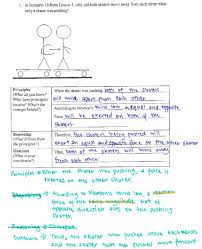 1. In Scenario 1b from Lesson 1, why did both skaters move away from each other when
only a skater was pushing?
Principles
(What do you know?
What laws/principles
involve? What's the
concept behind?)
When the skater was pushing, both of the skaters
will move apart from each other.
According to Newton's third law, equal and opposite
force will be exerted on both of the
skaters.
Reasoning
(What follows from
the principles?)
Therefore, the skaters being pushed will
exert an equal and opposite force on the other skater
Outcome
(What is your
conclusion?)
Thus, both of the skaters will move away
from each other.
Principles → When the skater was pushing, a force is
exerted on the other skater.
Reasoning → According to Newton's third law, a reaction
force of the same magnitude but of
opposite direction acts on the pushing
skater.
Outcome → Thus, the skater who pushes move backwards
and the skater that was pushed move forward